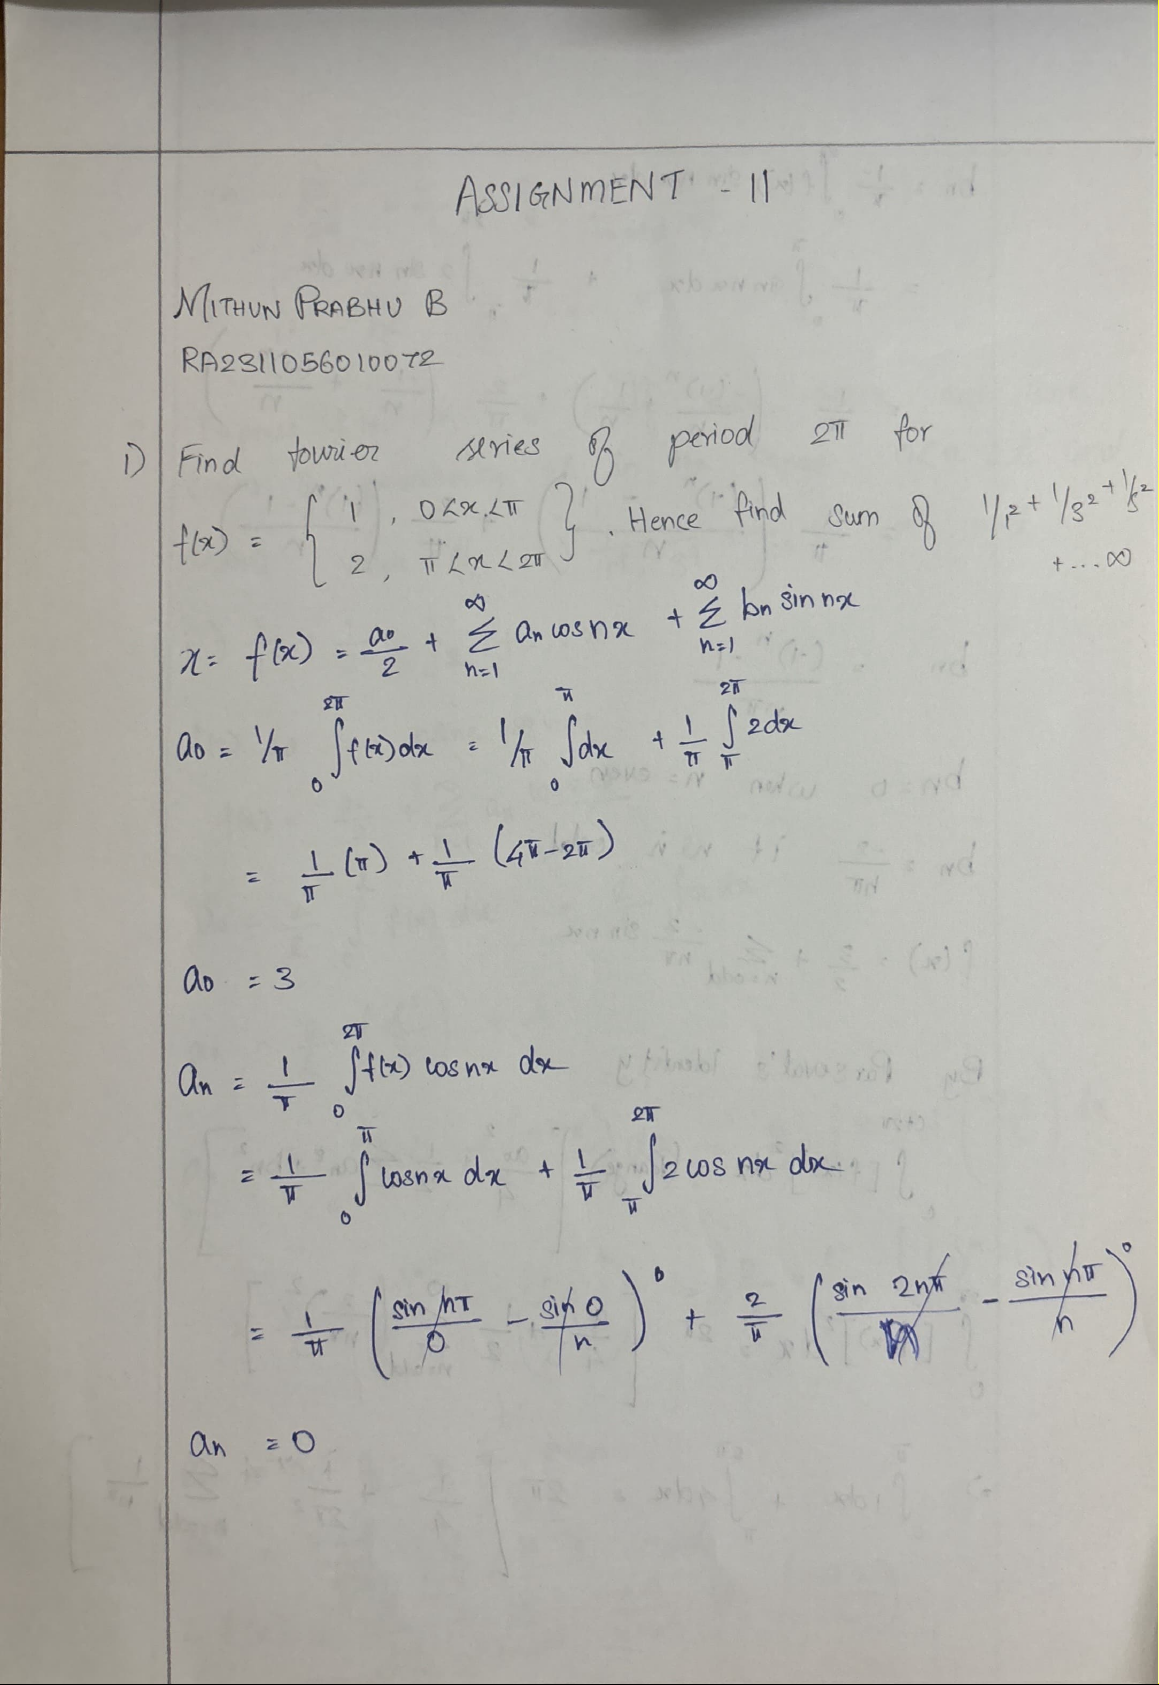 ASSIGNMENT - 11
MITHUN PRABHU B
RA2311056010072
1) Find fourier series of period 2π for
f(x) = { 1 , 0<x<π
2 , π<x<2π } . Hence find sum of 1/1² + 1/3² + 1/5²
+ ... ∞
x = f(x) = a0/2 + ∞Σn=1 an cos nx + ∞Σn=1 bn sin nx
a0 = 1/π 2π∫0 f(x) dx = 1/π π∫0 dx + 1/π 2π∫π 2dx
= 1/π (π) + 1/π (4π-2π)
a0 = 3
an = 1/π 2π∫0 f(x) cos nx dx
= 1/π π∫0 cosnx dx + 1/π 2π∫π 2 cos nx dx
= 1/π (sin nπ/0 - sin 0/n)⁰ + 2/π (sin 2nπ/n - sin nπ/n)⁰
an = 0